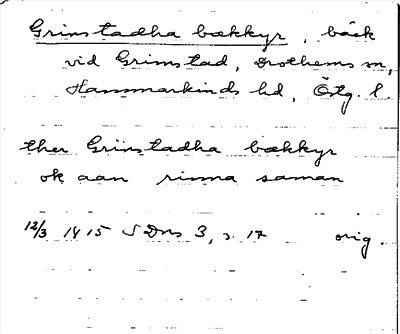 Grinstadha bækkyr, bäck
vid Grimstad, Drothems sn,
Hammarkinds hd, Östg. l.
ther Grinstadha bækkyr
ok aan rinna saman
12/3 1415 SDns 3, s. 17 orig.